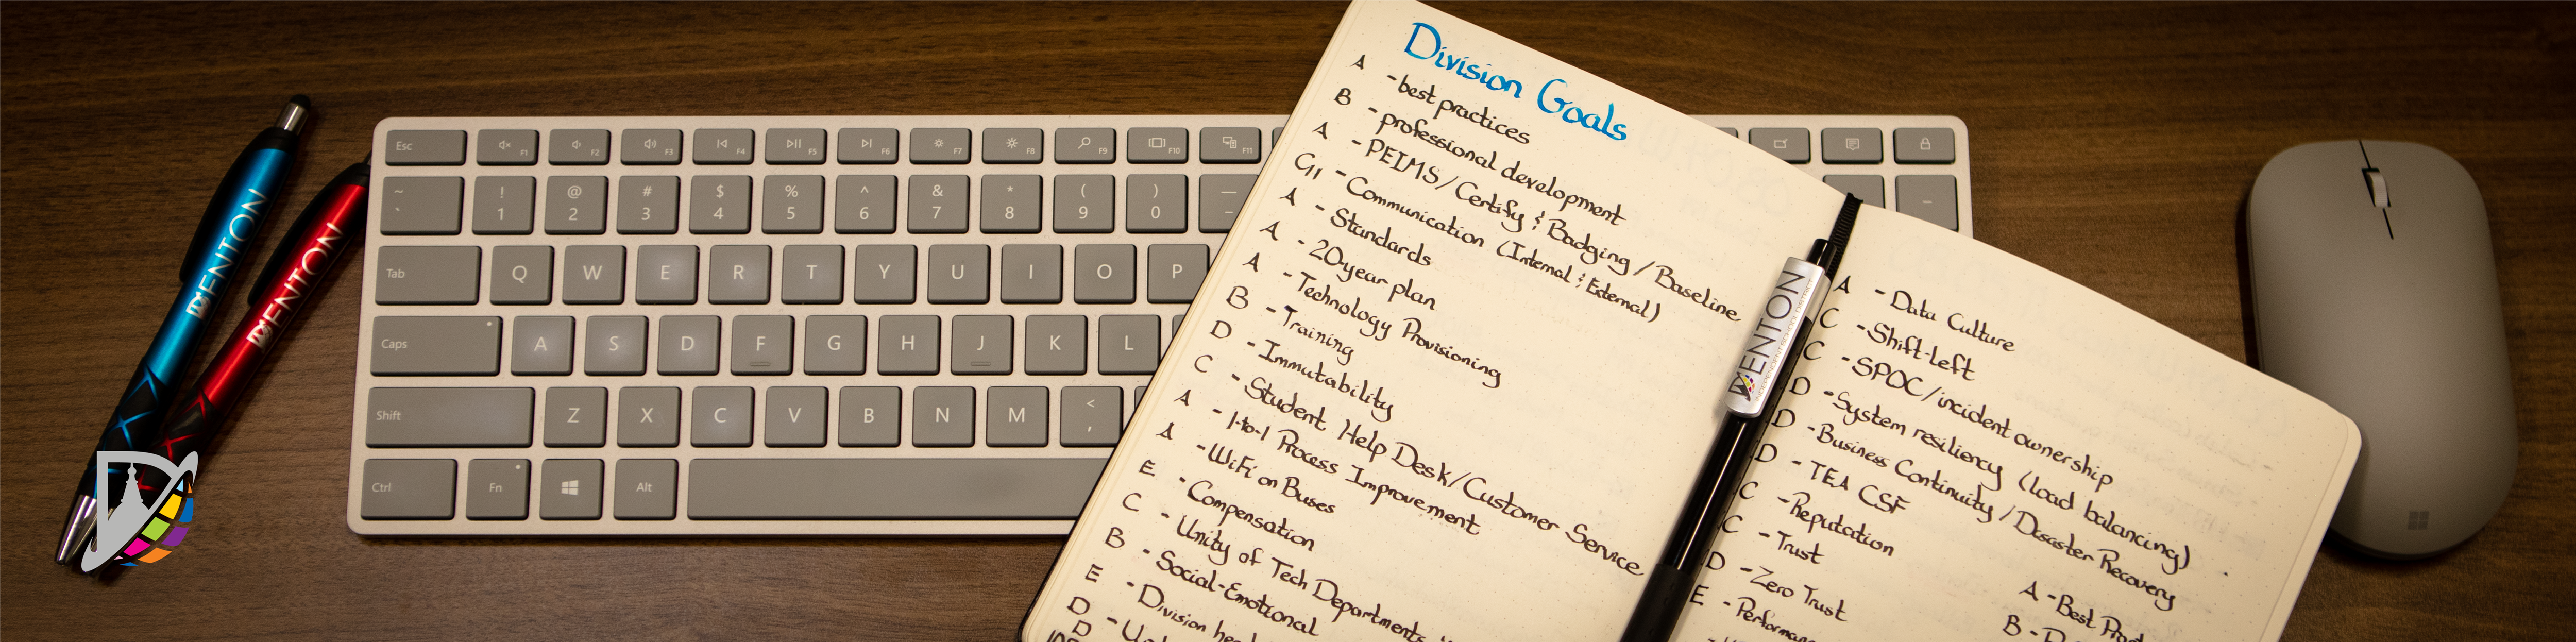 DENTON
DENTON
Esc F1 F2 F3 F4 F5 F6 F7 F8 F9 F10 F11
~ ! @ # $ % ^ & * ( ) —
` 1 2 3 4 5 6 7 8 9 0 -
Tab Q W E R T Y U I O P
Caps A S D F G H J K L
Shift Z X C V B N M < ,
Ctrl Fn Alt
Division Goals
A - best practices
B - professional development
A - PEIMS/Certify & Badging/Baseline
G1 - Communication (Internal & External)
A - Standards
A - 20year plan
A - Technology Provisioning
B - Training
D - Immutability
C - Student Help Desk/Customer Service
A - 1-to-1 Process Improvement
A - WiFi on Buses
E - Compensation
C - Unity of Tech Departments
B - Social-Emotional
E - Division
D
D
DENTON
INDEPENDENT SCHOOL DISTRICT
A - Data Culture
C - Shift-left
C - SPOC/incident ownership
D - System resiliency (load balancing)
D - Business Continuity/Disaster Recovery
D - TEA CSF
C - Reputation
C - Trust
D - Zero Trust
E
A - Best
B